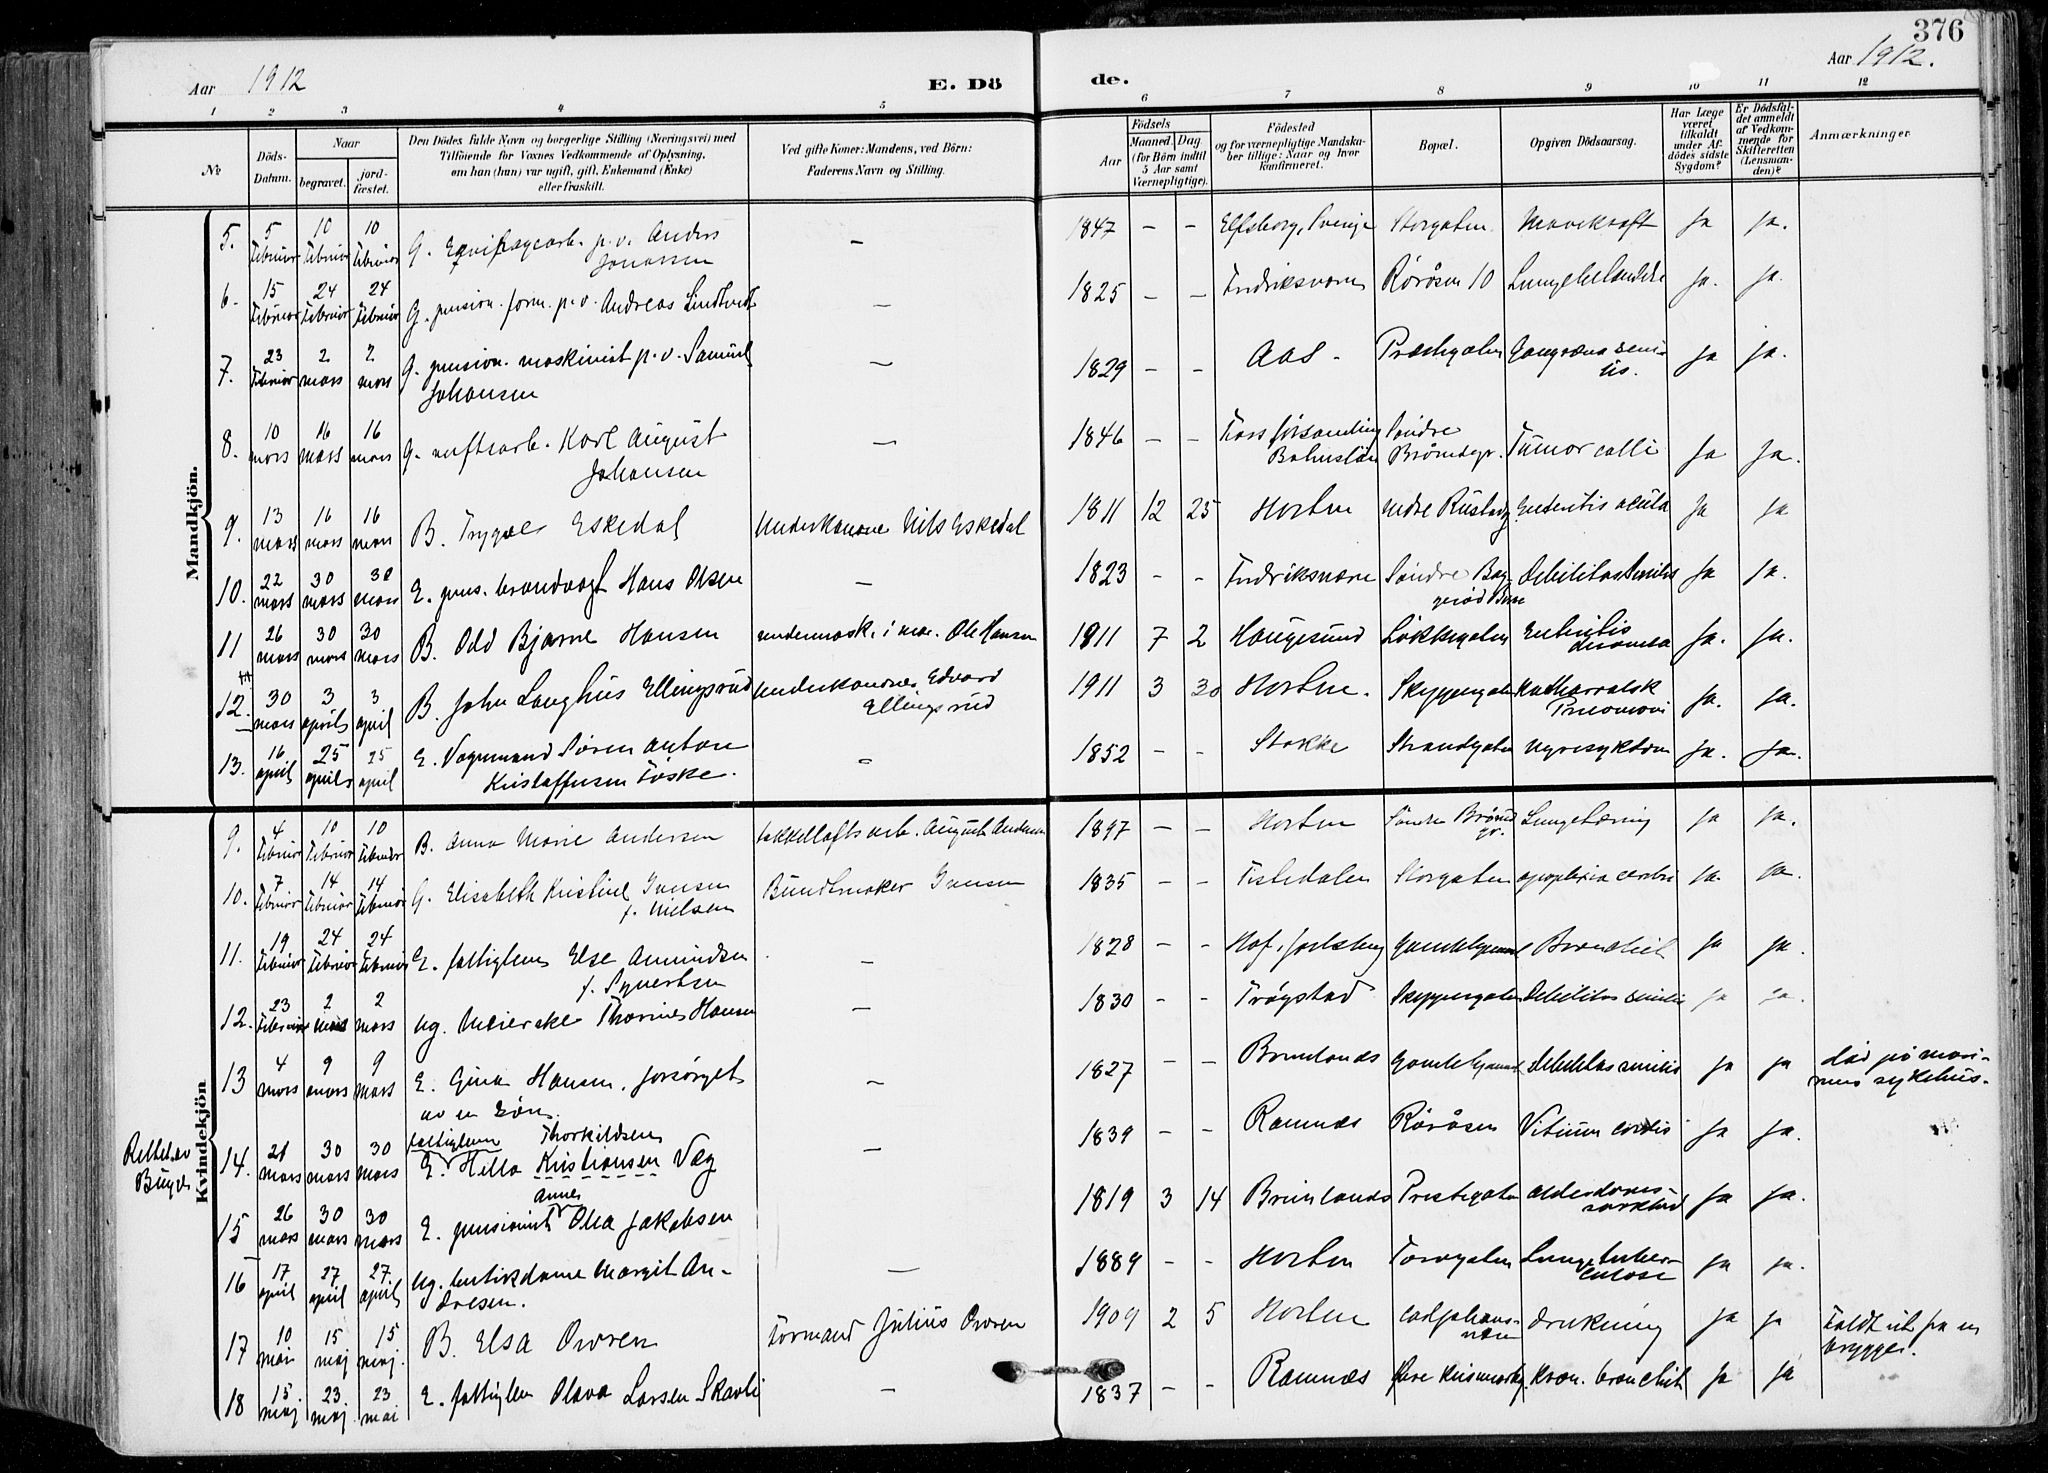 376
Aar 1912
E. Dö
de.
Aar 1912.
1 2 3 4 5 6 7 8 9 10 11 12
No
Döds-Datum.
Naar
begravet.
jord-fæstet.
Den Dödes fulde Navn og borgerlige Stilling (Næringsvei) med
Tilföiende for Voxnes Vedkommende af Oplysning,
om han (hun) var ugift, gift, Enkemand (Enke)
eller fraskilt.
Ved gifte Koner: Mandens, ved Börn:
Faderens Navn og Stilling.
Födsels
Aar
Maaned. Dag.
(for Börn indtil
5 Aar samt
Værnepligtige).
Födested
og for værnepligtige Mandska-
ber tillige: Naar og hvor
konfirmeret.
Bopæl.
Opgiven Dödsaarsag.
Har Læge
været
tilkaldt
under Af-
dödes sidste
Sygdom?
Er Dödsfal-
det anmeldt
af Vedkom-
mende for
Skifteretten
(Lensman-
den)?
Anmærkninger
Mandkjön.
5. 5 Februar 10 Februar 10 Februar G. p.v. Anders Jonassen — 1847 — — Elfsborg, Sverige Storgaten Mavekræft Ja ja.
6. 15 Februar 24 Februar 24 Februar G. pension. form. p.v. Andreas Lindtvedt — 1825 — — Fredriksværn Røråsen 10 Ja. ja.
7. 23 Februar 2 mars 2 mars G. pension. maskinist p.v. Samuel Johansen — 1829 — — Aas - Præstegaten Gangræna seni-lis. Ja ja.
8. 10 mars 16 mars 16 mars G. verftsarb. Karl August Johansen — 1846 — — Fors forsamling Bohuslän Søndre Brårudgt. Tumor colli Ja Ja.
9. 13 mars 16 mars 16 mars B. Trygve Eskedal Underkanone Nils Eskedal 1811 12 25 Horten nedre Rustadg. Enteritis acuta Ja Ja
10. 22 mars 30 mars 30 mars E. pens. brandvagt Hans Olsen — 1823 - - Fredriksværn Søndre Bag- Debilitas senilis Ja Ja.
11 26 mars 30 mars 30 mars B. Odd Bjarne Hansen undermask. i mar. Ole Hansen 1911 7 2 Haugesund Løkkegaten Enteritis Ja. Ja.
12. 30 mars 3 april 3 april B. John Langhus Ellingsrud Underkanoner Edvard Ellingsrud 1911 3 30 Horten. Skippergaten Katharralsk Pneomoni Ja. Ja.
13. 16 april 25 april 25 april E. Vognmand Søren Anton Kristoffersen Føske. - 1852 - - Stokke Strandgaten Nyresykdom Ja. Ja.
Kvindekjön
9. 4 Februar 10 Februar 10 Februar B. Anna Marie Andersen takkelloftsarb. August Andersen 1897 — — Horten Søndre Brårud gt. Lungetæring Ja Ja.
10. 7 Februar 14 Februar 14 Februar G. Elisabeth Kristine Jensen f. Nielsen Bundtmaker Jensen 1835 - - Tistedalen Storgaten apoplexia cerebri Ja. Ja.
11. 19 Februar 24 Februar 24 Februar E. fattiglem Else Amundsen f. Syvertsen — 1828 - - Hof, Jarlsberg Gamlehjemmet Bronchit Ja Ja.
12. 23 Februar 2 mars 2 mars Ug. Meierske Thorine Hansen — 1830 - - Trøgstad Skippergaten Debilitas senilis Ja Ja.
13 4 mars 9 mars 9 mars E. Gina Hansen, forsørget av en søn. — 1827 - - Brunlanæs Gamlehjemmet Debilitas senilis Ja Ja død på mari-nens sykehus.
Rettet av Byge
14. 21 mars 30 mars 30 mars fattiglem E. Hella Kristiansen Thorkildsen Væg — 1839 - - Ramnæs Røråsen Vitium cordis Ja Ja.
15 26 mars 30 mars 30 mars E. pensionist Anne Olea Jakobsen 1819 3 14 Brunlanæs Prestegaten alderdoms-svækked Ja Ja.
16 17 april 27 april 27 april Ug. butikdame Margit An-dresen. — 1889 - - Horten Torvgaten Lungetuber-culose Ja Ja.
17 10 mai 15 maj 15 maj. B. Elsa Owren Formand Julius Owren 1909 2 5 Horten drukning Ja Ja Faldt ut fra en brygge.
18 15 maj 23 maj 23 mai E. fattiglem Olava Larsen Skavli — 1837 - - Ramnæs kron. bronchit Ja Ja